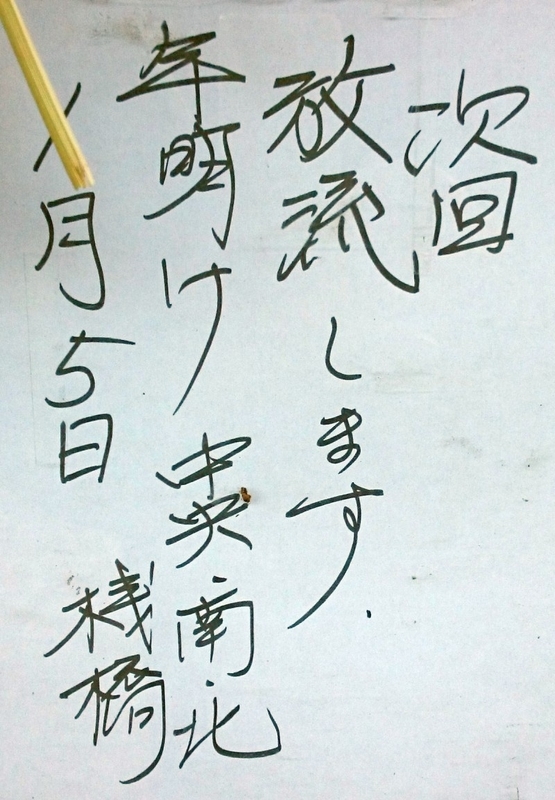 次回
放流します.
年明け 中央・南・北
1月5日 桟橋